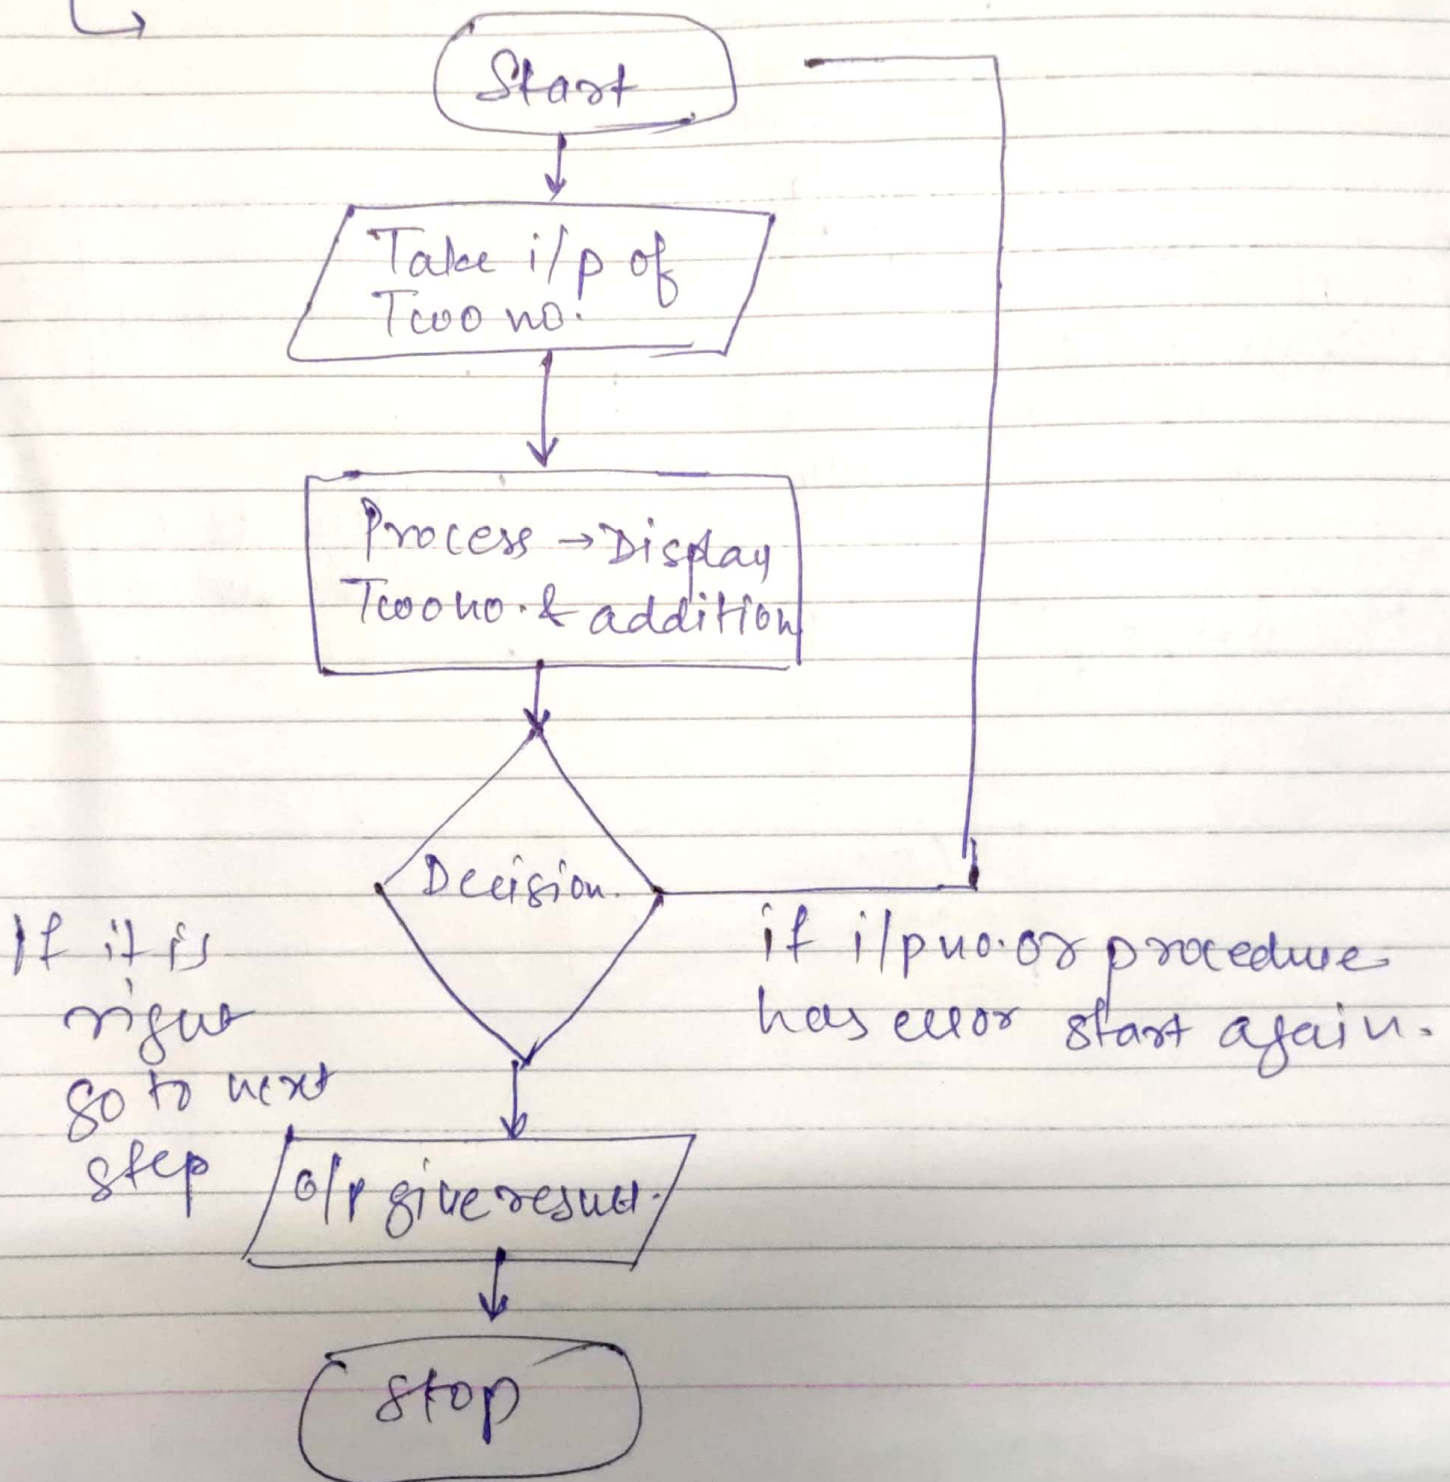 Start
Take i/p of
Two no.
Process → Display
Two no. & addition
Decision.
If it is
right
go to next
step
if i/p no. or procedure
has error start again.
o/p give result.
Stop